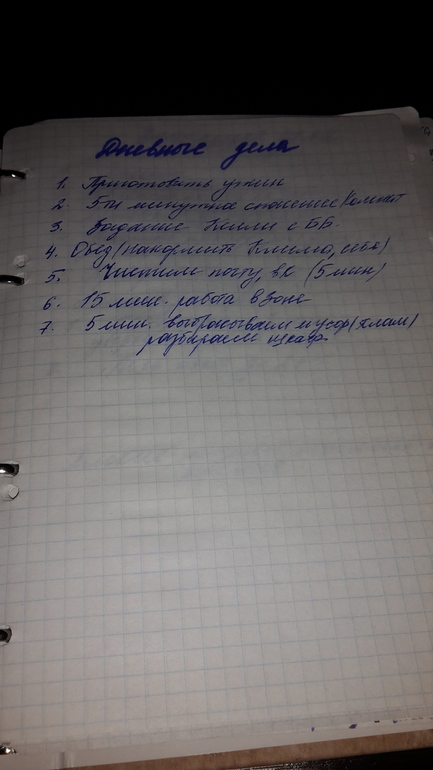 Дневные дела
1. Приготовить ужин
2. 5ти минутное спасение комнат
3. Катание с ББ.
4. Обед (накормить, себя)
5. Чистим почту, вк (5 мин)
6. 15 мин. работа в зоне
7. 5 мин. выбрасываем мусор (хлам)
разбираем шкаф